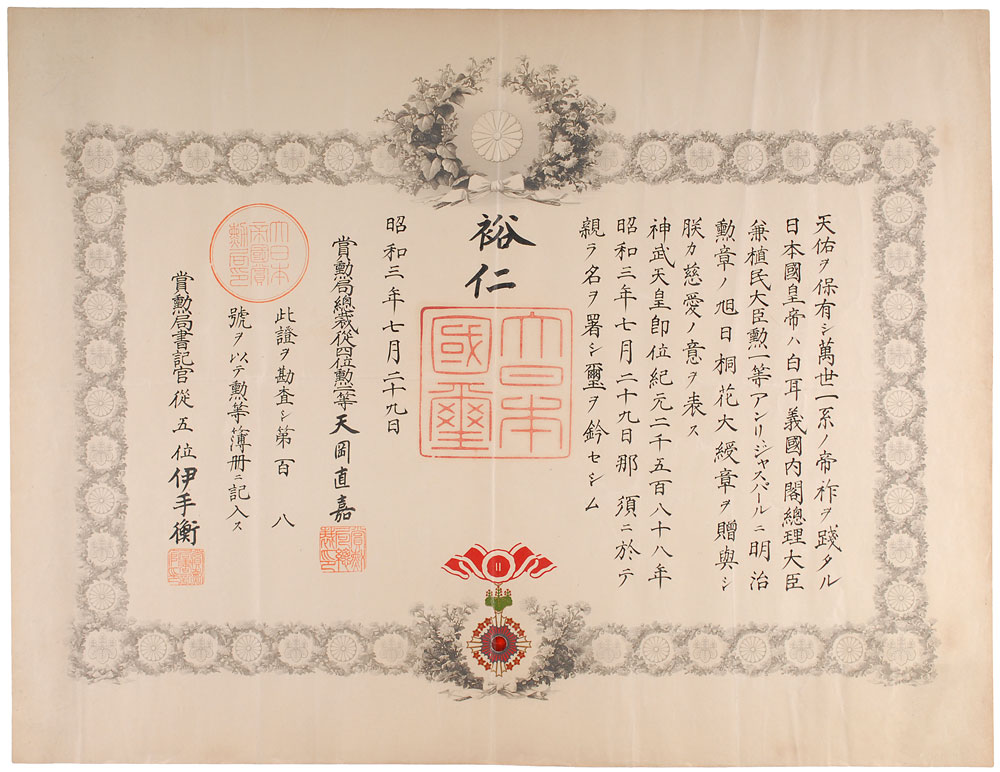 天佑ヲ保有シ萬世一系ノ帝祚ヲ踐タル
日本國皇帝ハ白耳義國內閣總理大臣
兼植民大臣勲一等アンリ、ジャスパールニ明治
勲章ノ旭日桐花大綬章ヲ贈與シ
朕カ慈愛ノ意ヲ表ス
神武天皇卽位紀元二千五百八十八年
昭和三年七月二十九日那須ニ於テ
親ラ名ヲ署シ璽ヲ鈐セシム
裕仁
大日本國璽
昭和三年七月二十九日
賞勲局總裁從四位勲二等天岡直嘉
此證ヲ勘査シ第百八
號ヲ以テ勲等簿册ニ記入ス
大日本帝國賞勲局印
賞勲局書記官從五位伊手衡